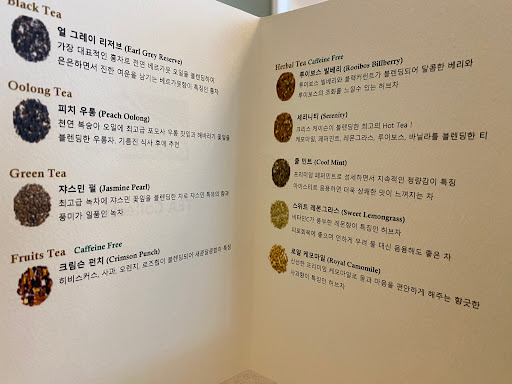 Black Tea
얼 그레이 리저브 (Earl Grey Reserve)
가장 대표적인 홍차로 천연 베르가못 오일을 블렌딩하여
은은하면서 진한 여운을 남기는 베르가못향이 특징인 홍차
Oolong Tea
피치 우롱 (Peach Oolong)
천연 복숭아 오일에 최고급 포모사 우롱 찻잎과 해바라기 꽃잎을
블렌딩한 우롱차. 기름진 식사 후에 추천
Green Tea
쟈스민 펄 (Jasmine Pearl)
최고급 녹차에 쟈스민 꽃잎을 블렌딩한 차로 쟈스민 특유의 향과
풍미가 일품인 녹차
Fruits Tea Caffeine Free
크림슨 펀치 (Crimson Punch)
히비스커스, 사과, 오렌지, 로즈힙이 블렌딩되어 새콤달콤함이 특징
Herbal Tea Caffeine Free
루이보스 빌베리 (Rooibos Billberry)
루이보스에 빌베리와 블랙커런트가 블렌딩되어 달콤한 베리와
루이보스의 조화를 느낄수 있는 허브차
세러니티 (Serenity)
크리스 케이슨이 블렌딩한 최고의 Hot Tea !
캐모마일, 페퍼민트, 레몬그라스, 루이보스, 바닐라를 블렌딩한 티
쿨 민트 (Cool Mint)
프리미엄 페퍼민트로 섬세하면서 지속적인 청량감이 특징
아이스티로 음용하면 더욱 상쾌한 맛이 느껴지는 차
스위트 레몬그라스 (Sweet Lemongrass)
비타민C가 풍부한 레몬향이 특징인 허브차
피로회복에 좋으며 연하게 우려 물 대신 음용해도 좋은 차
로얄 케모마일 (Royal Camomile)
신선한 프리미엄 케모마일로 몸과 마음을 편안하게 해주는 향긋한
사과향이 특징인 허브차